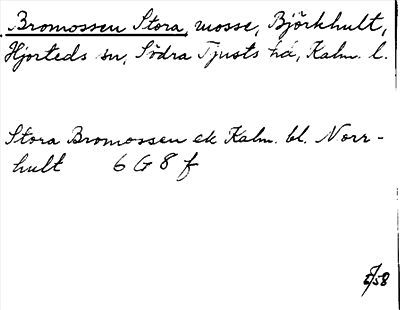 Bromossen Stora, mosse, Björkhult,
Hjorteds sn, Södra Tjusts hd, Kalm. l.
Stora Bromossen ek Kalm. bl. Norr-
hult 6 G 8 f
5/58